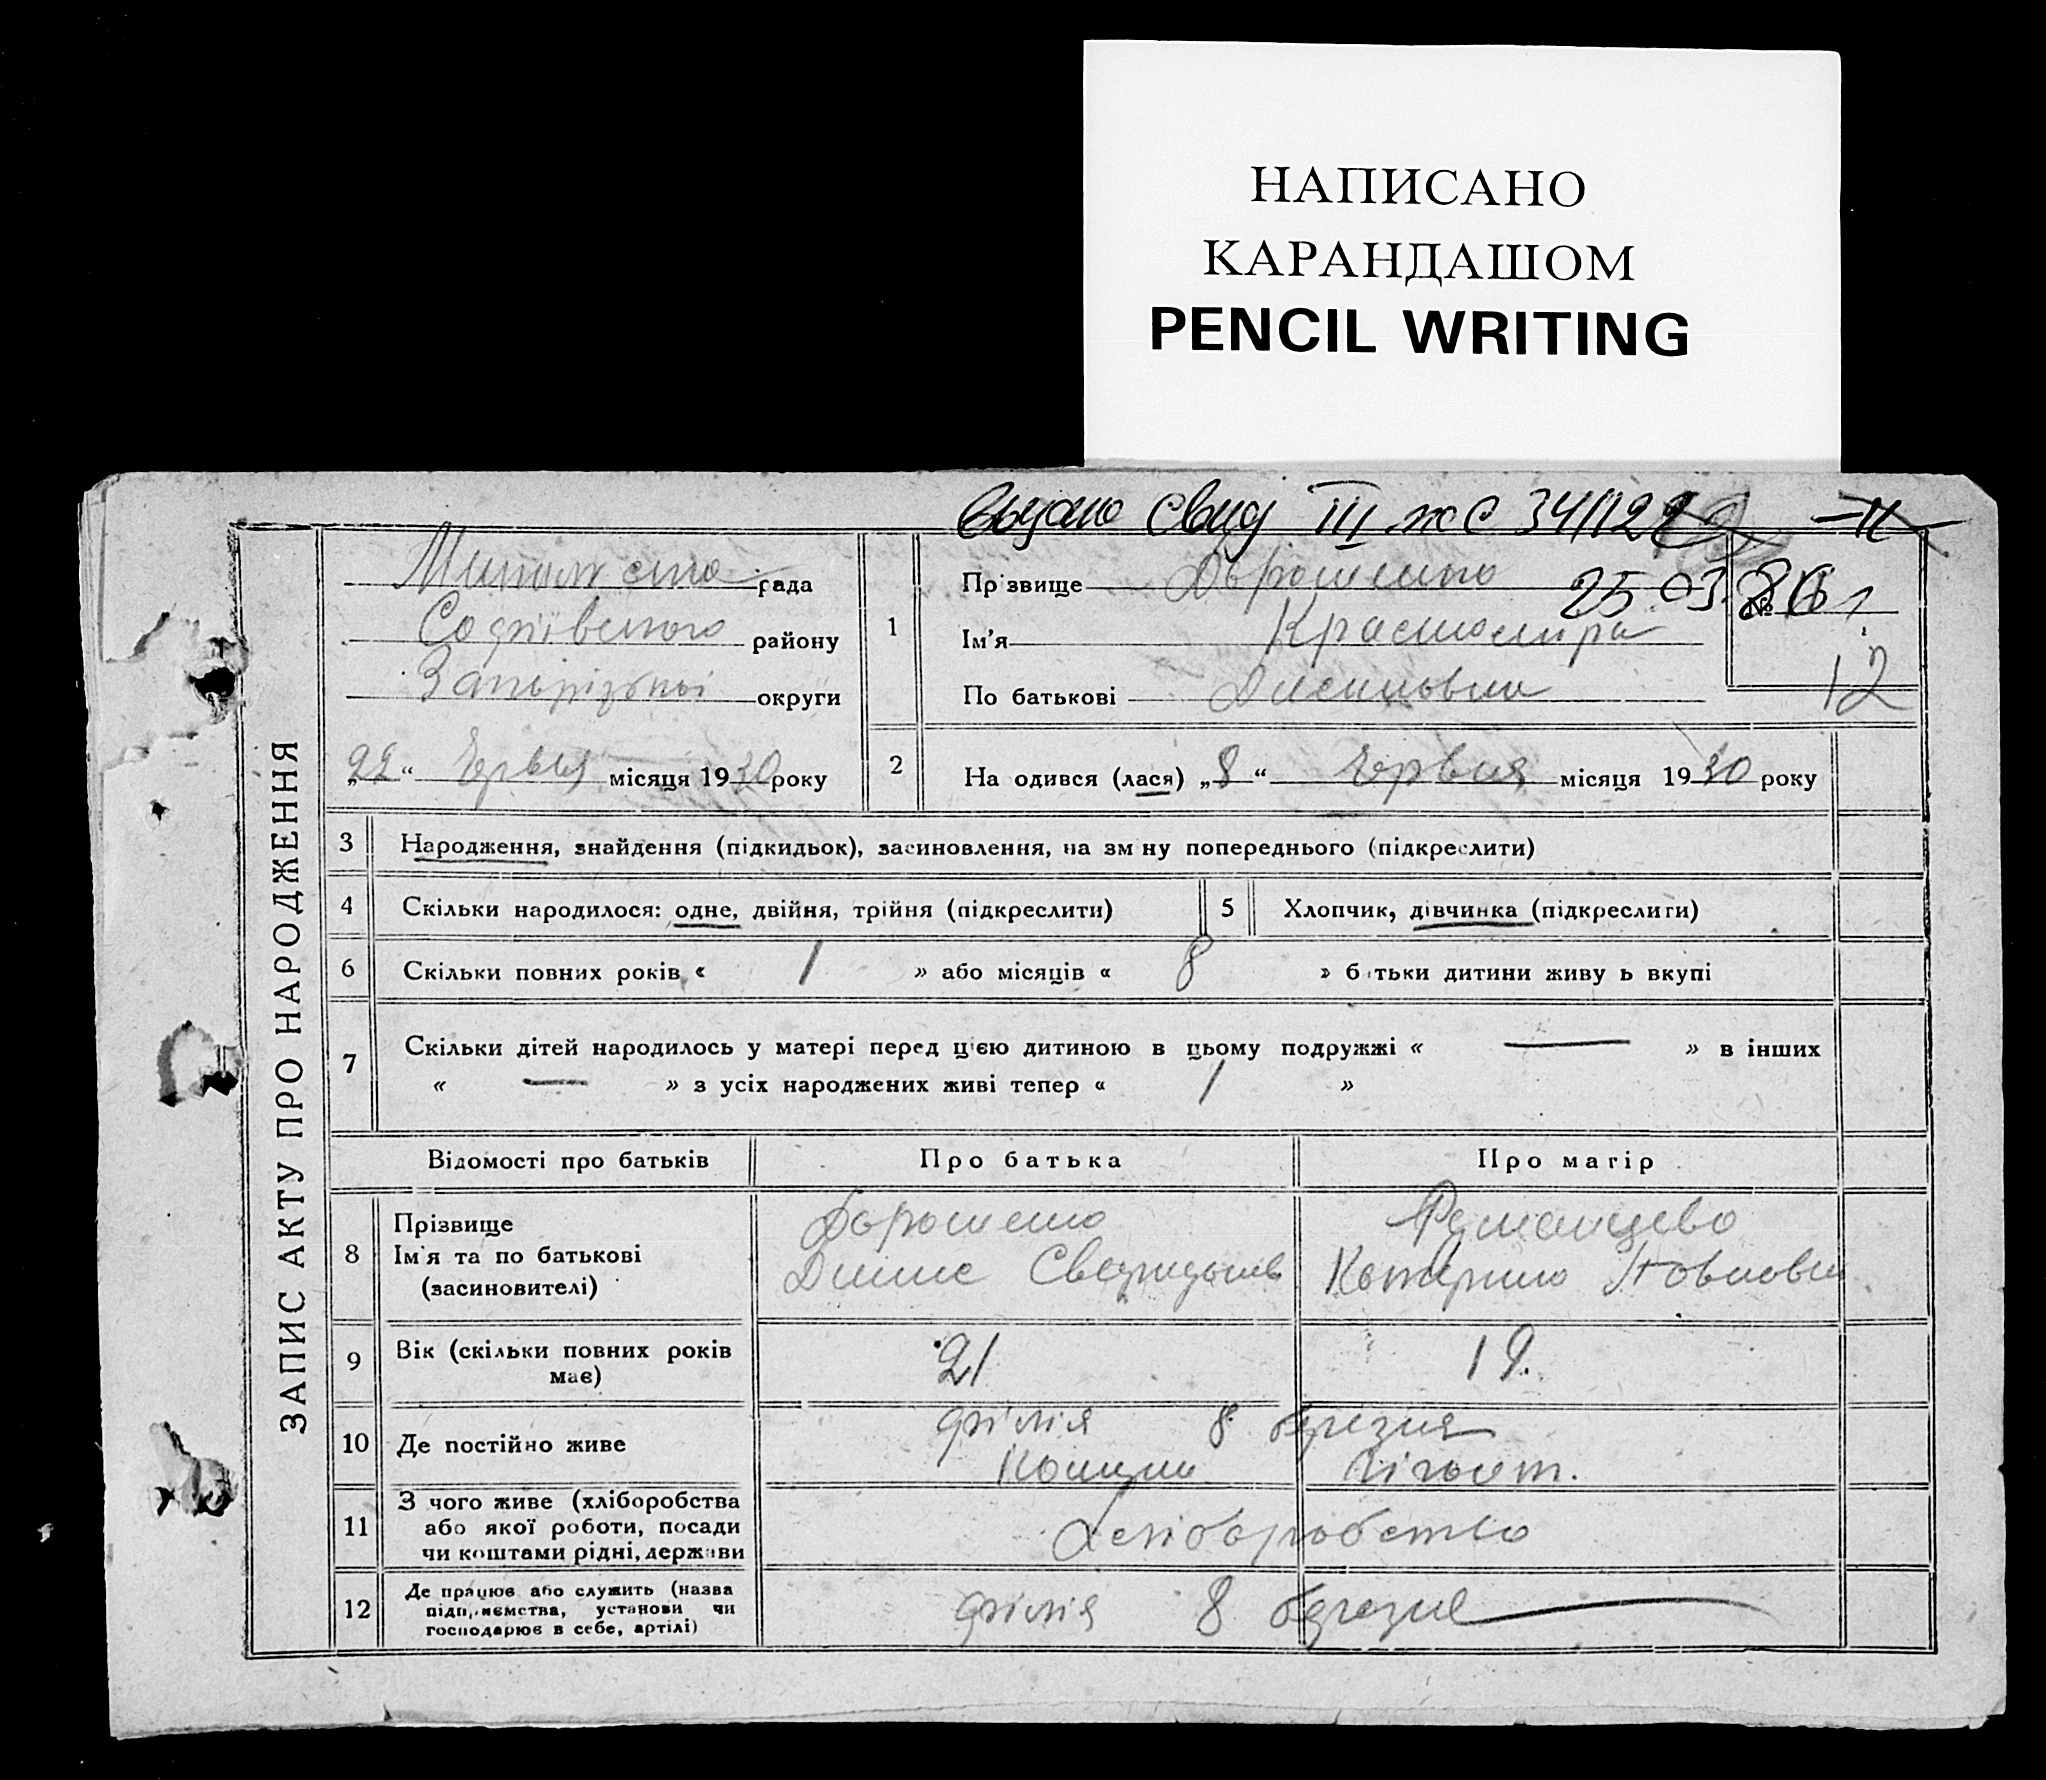 НАПИСАНО
КАРАНДАШОМ
PENCIL WRITING
свид III ЖС
ЗАПИС АКТУ ПРО НАРОДЖЕННЯ
рада
Софіївського району
Запорізької округи
„22“ Червня місяця 1930 року
1
Прізвище Дорошенко
Ім'я Красномира
По батькові Дисиповна
25 03
№
12
2
На одився (лася) „8“ Червня місяця 1930 року
3 Народження, знайдення (підкидьок), засиновлення, на зм ну попереднього (підкреслити)
4 Скільки народилося: одне, двійня, трійня (підкреслити)
5 Хлопчик, дівчинка (підкреслити)
6 Скільки повних років « 1 » або місяців « 8 » б тьки дитини живу ь вкупі
7 Скільки дітей народилось у матері перед цією дитиною в цьому подружжі « — » в інших
« — » з усіх народжених живі тепер « 1 »
Відомості про батьків Про батька Про матір
8 Прізвище
Ім'я та по батькові
(засиновителі)
Дорошенко
Румянцева
Катерина Павловна
9 Вік (скільки повних років має) 21 19.
10 Де постійно живе філія 8 березня
11 З чого живе (хліборобства
або якої роботи, посади
чи коштами рідні, держави
Хліборобство
12 Де працює або служить (назва
підприємства, установи чи
господарює в себе, артілі)
філія 8 березня